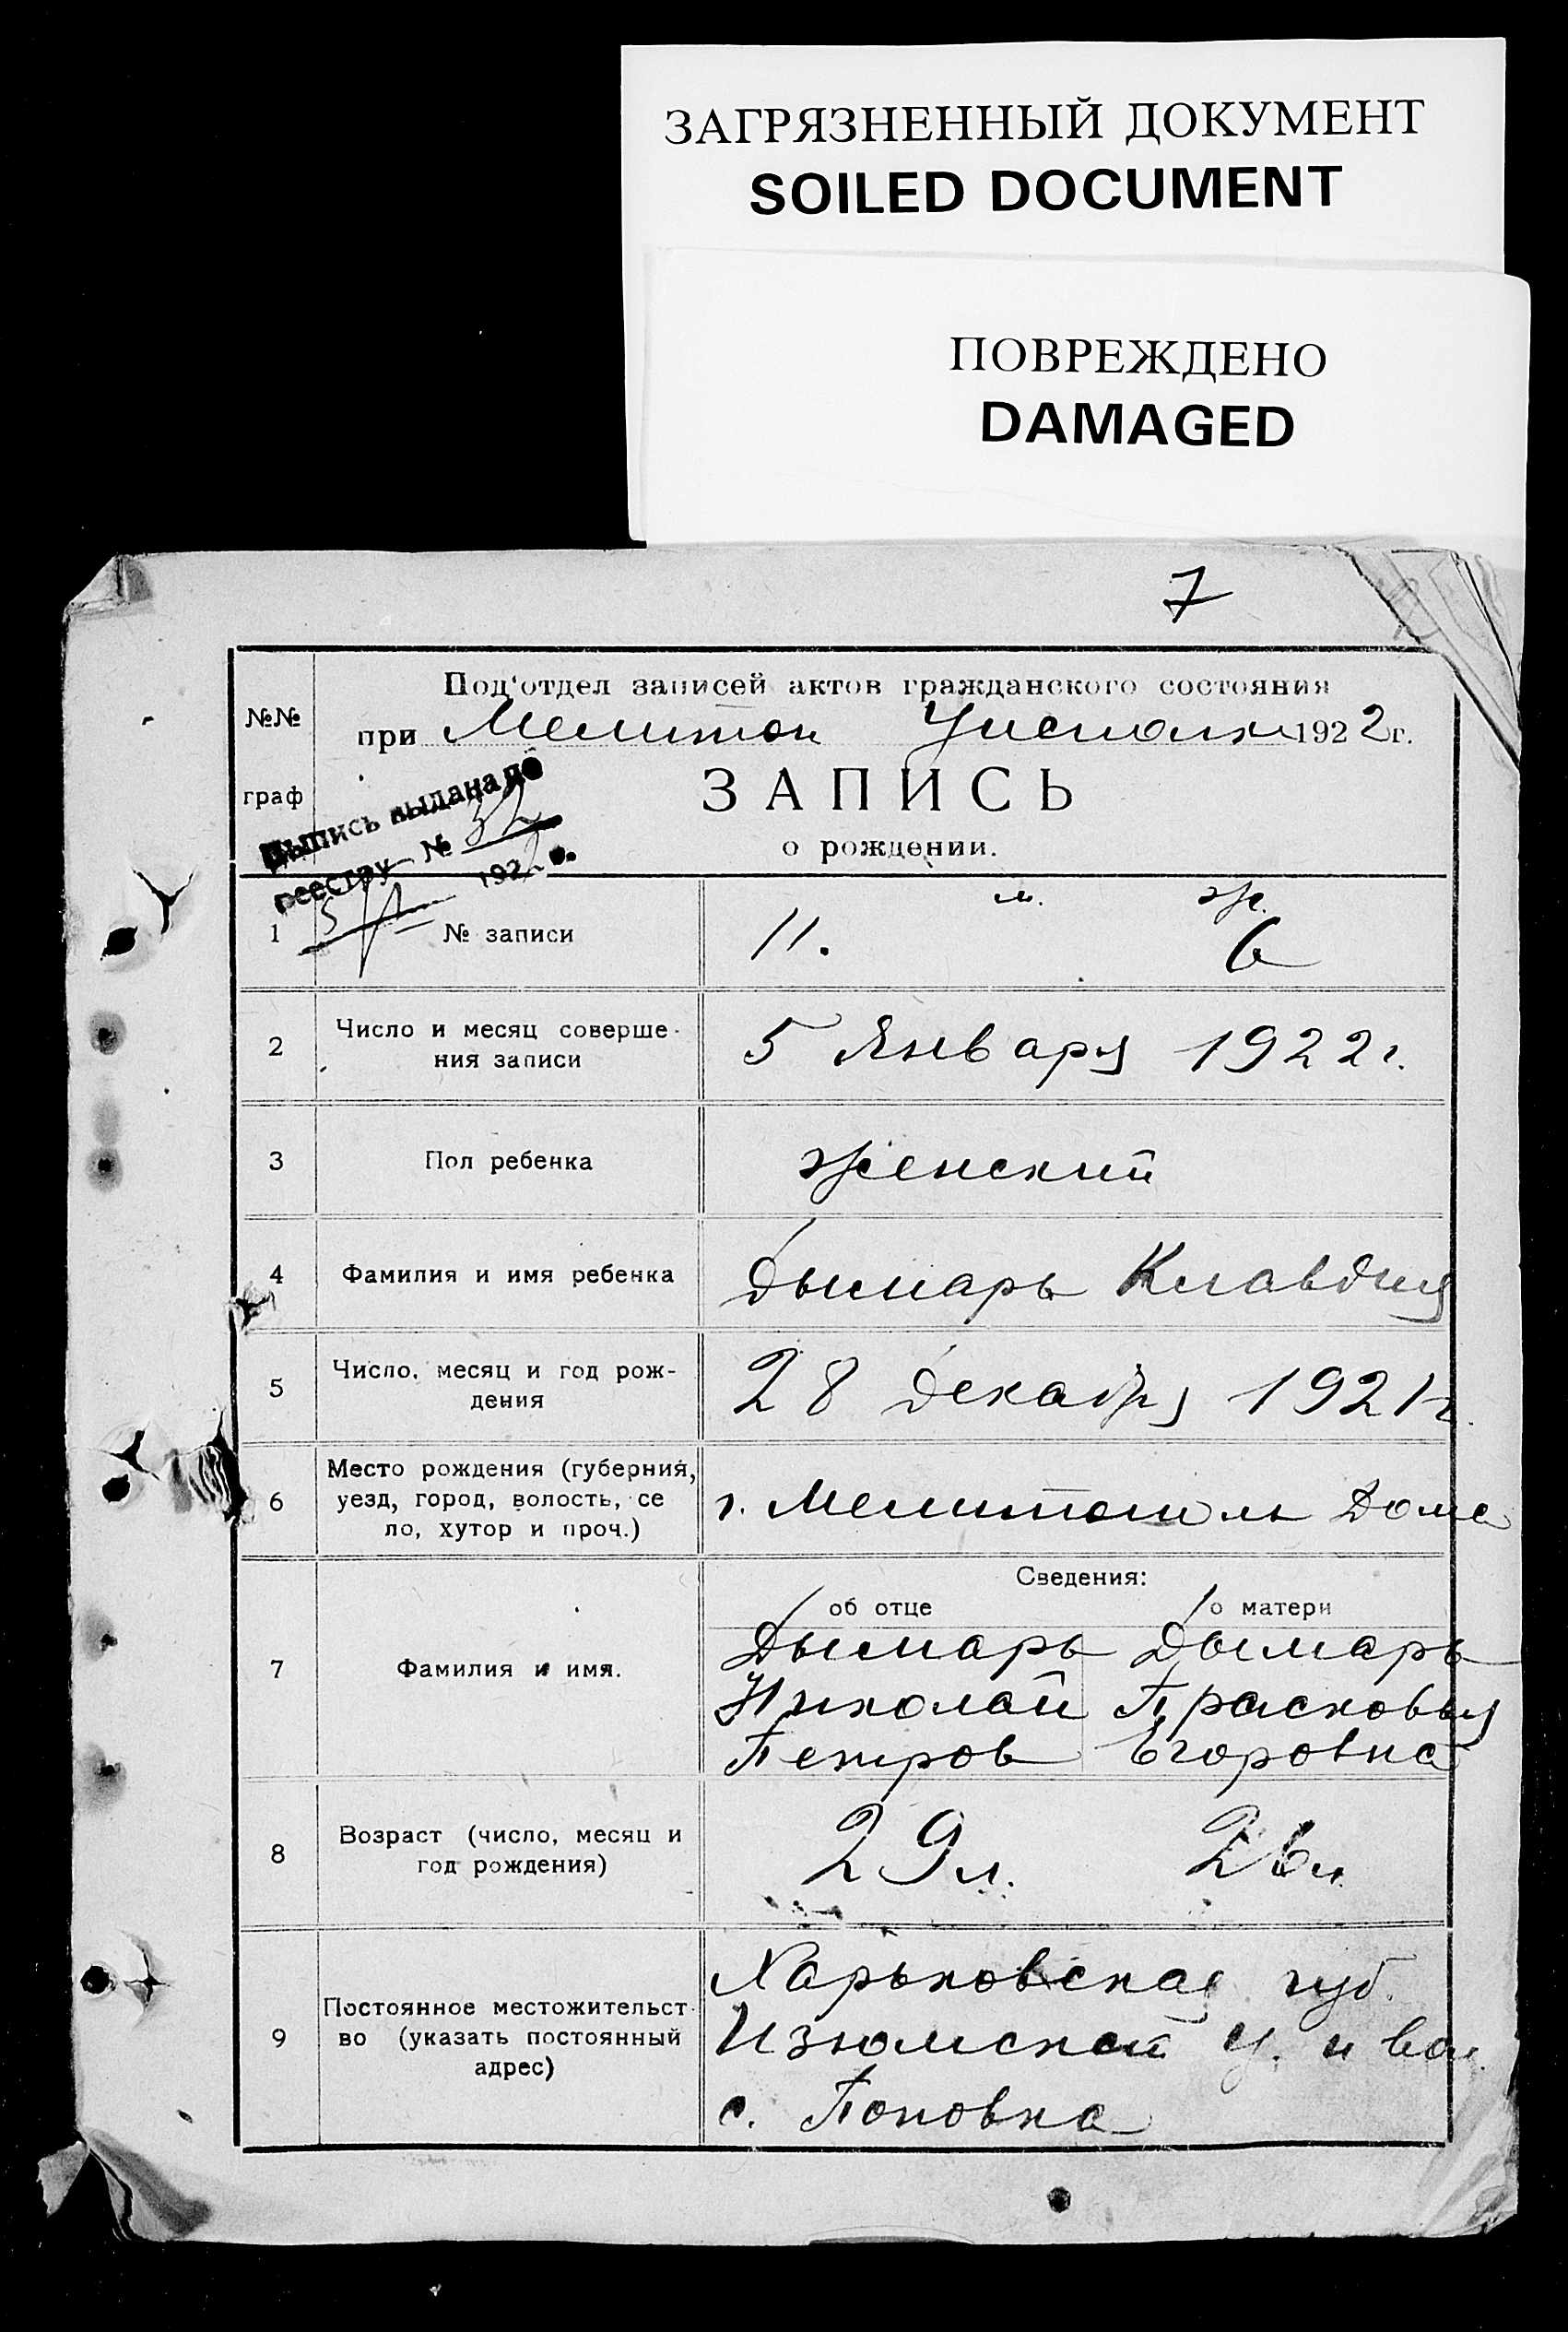 ЗАГРЯЗНЕННЫЙ ДОКУМЕНТ
SOILED DOCUMENT
ПОВРЕЖДЕНО
DAMAGED
7
№№ граф
Под'отдел записей актов гражданского состояния
при Мелитоп 1922 г.
ЗАПИСЬ
о рождении.
Выпись выдана по
реестру № 32
192 г.
1 № записи 11. м. ж. 6
2 Число и месяц соверше-
ния записи 5 Января 1922 г.
3 Пол ребенка женский
4 Фамилия и имя ребенка Дымарь Клавдия
5 Число, месяц и год рож-
дения 28 декабря 1921 г.
6 Место рождения (губерния,
уезд, город, волость, се
ло, хутор и проч.) г. Мелитополь Дома
Сведения:
об отце о матери
7 Фамилия и имя.
Дымарь Дымарь
Николай Прасковья
Петров Егоровна
8 Возраст (число, месяц и
год рождения) 29 л. 26 л.
9 Постоянное местожительст-
во (указать постоянный
адрес)
Харьковская губ.
Изюмской у. и вол.
с. Поповка